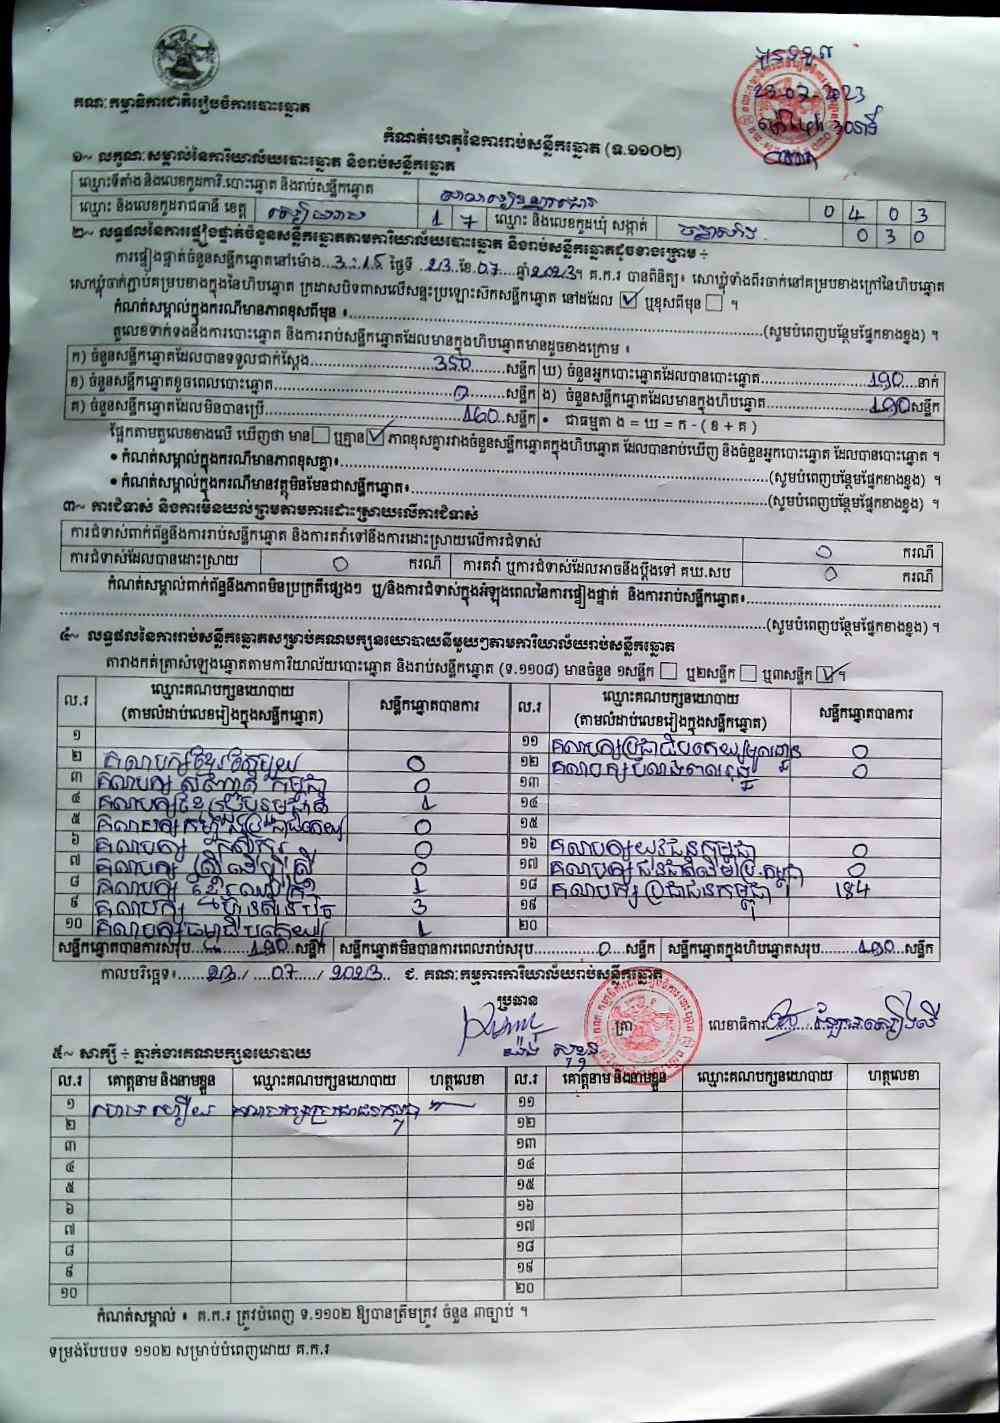 គណៈកម្មាធិការជាតិរៀបចំការបោះឆ្នោត
23-07-2023
កំណត់ហេតុនៃការរាប់សន្លឹកឆ្នោត (ទ.១១០២)
១~ លក្ខណៈសម្គាល់នៃការិយាល័យបោះឆ្នោត និងរាប់សន្លឹកឆ្នោត
ឈ្មោះទីតាំង និងលេខកូដការិ.បោះឆ្នោត និងរាប់សន្លឹកឆ្នោត 0 4 0 3
ឈ្មោះ និងលេខកូដរាជធានី ខេត្ត សៀមរាប 1 7 ឈ្មោះ និងលេខកូដឃុំ សង្កាត់ 0 3 0
២~ លទ្ធផលនៃការផ្ទៀងផ្ទាត់ចំនួនសន្លឹកឆ្នោតតាមការិយាល័យបោះឆ្នោត និងរាប់សន្លឹកឆ្នោតដូចខាងក្រោម ÷
ការផ្ទៀងផ្ទាត់ចំនួនសន្លឹកឆ្នោតនៅម៉ោង...3:15 ថ្ងៃទី .23.ខែ.07....ឆ្នាំ2023។ គ.ក.រ បានពិនិត្យ៖ សោឃ្លុំទាំងពីរចាក់នៅគម្របខាងក្រៅនៃហិបឆ្នោត
សោឃ្លុំចាក់ភ្ជាប់គម្របខាងក្នុងនៃហិបឆ្នោត ក្រដាសបិទពាសលើសន្ទះប្រឡោះស៊កសន្លឹកឆ្នោត នៅដដែល ☑ ឬខុសពីមុន ☐ ។
កំណត់សម្គាល់ក្នុងករណីមានភាពខុសពីមុន ៖..........(សូមបំពេញបន្ថែមផ្នែកខាងខ្នង) ។
តួលេខទាក់ទងនឹងការបោះឆ្នោត និងការរាប់សន្លឹកឆ្នោតដែលមានក្នុងហិបឆ្នោតមានដូចខាងក្រោម ៖
ក) ចំនួនសន្លឹកឆ្នោតដែលបានទទួលជាក់ស្តែង..........350..........សន្លឹក ឃ) ចំនួនអ្នកបោះឆ្នោតដែលបានបោះឆ្នោត..........190....នាក់
ខ) ចំនួនសន្លឹកឆ្នោតខូចពេលបោះឆ្នោត..........0..........សន្លឹក ង) ចំនួនសន្លឹកឆ្នោតដែលមានក្នុងហិបឆ្នោត..........190សន្លឹក
គ) ចំនួនសន្លឹកឆ្នោតដែលមិនបានប្រើ..........160...សន្លឹក • ជាធម្មតា ង = ឃ = ក - ( ខ + គ )
ផ្អែកតាមតួលេខខាងលើ ឃើញថា មាន ☐ ឬគ្មាន ☑ ភាពខុសគ្នារវាងចំនួនសន្លឹកឆ្នោតក្នុងហិបឆ្នោត ដែលបានរាប់ឃើញ និងចំនួនអ្នកបោះឆ្នោត ដែលបានបោះឆ្នោត ។
• កំណត់សម្គាល់ក្នុងករណីមានភាពខុសគ្នា៖..........(សូមបំពេញបន្ថែមផ្នែកខាងខ្នង) ។
• កំណត់សម្គាល់ក្នុងករណីមានវត្ថុមិនមែនជាសន្លឹកឆ្នោត៖..........(សូមបំពេញបន្ថែមផ្នែកខាងខ្នង) ។
៣~ ការជំទាស់ និងការមិនយល់ព្រមតាមការដោះស្រាយលើការជំទាស់
ការជំទាស់ពាក់ព័ន្ធនឹងការរាប់សន្លឹកឆ្នោត និងការតវ៉ាទៅនឹងការដោះស្រាយលើការជំទាស់ 0 ករណី
ការជំទាស់ដែលបានដោះស្រាយ 0 ករណី ការតវ៉ា ឬការជំទាស់ដែលអាចនឹងប្តឹងទៅ គឃ.សប 0 ករណី
កំណត់សម្គាល់ពាក់ព័ន្ធនឹងភាពមិនប្រក្រតីផ្សេងៗ ឬ/និងការជំទាស់ក្នុងអំឡុងពេលនៃការផ្ទៀងផ្ទាត់ និងការរាប់សន្លឹកឆ្នោត៖..........
..........(សូមបំពេញបន្ថែមផ្នែកខាងខ្នង) ។
៤~ លទ្ធផលនៃការរាប់សន្លឹកឆ្នោតសម្រាប់គណបក្សនយោបាយនីមួយៗតាមការិយាល័យរាប់សន្លឹកឆ្នោត
តារាងកត់ត្រាសំឡេងឆ្នោតតាមការិយាល័យបោះឆ្នោត និងរាប់សន្លឹកឆ្នោត (ទ.១១០៨) មានចំនួន ១សន្លឹក ☐ ឬ២សន្លឹក ☐ ឬ៣សន្លឹក ☑ ។
ល.រ ឈ្មោះគណបក្សនយោបាយ (តាមលំដាប់លេខរៀងក្នុងសន្លឹកឆ្នោត) សន្លឹកឆ្នោតបានការ ល.រ ឈ្មោះគណបក្សនយោបាយ (តាមលំដាប់លេខរៀងក្នុងសន្លឹកឆ្នោត) សន្លឹកឆ្នោតបានការ
១ ១១ គណបក្សប្រជាធិបតេយ្យមូលដ្ឋាន 0
២ គណបក្សខ្មែរតែមួយ 0 ១២ គណបក្ស 0
៣ គណបក្ស សញ្ជាតិ កម្ពុជា 0 ១៣
៤ គណបក្សខ្មែររួបរួមជាតិ 1 ១៤
៥ គណបក្សកម្លាំងប្រជាធិបតេយ្យ 0 ១៥
៦ គណបក្ស កសិករ 0 ១៦ គណបក្សយុវជនកម្ពុជា 0
៧ គណបក្ស ស្ត្រីដើម្បីស្ត្រី 0 ១៧ គណបក្សជនជាតិដើមប្រ.កម្ពុជា 0
៨ គណបក្ស ខ្មែរឈប់ក្រ 1 ១៨ គណបក្ស ប្រជាជនកម្ពុជា 184
៩ គណបក្ស ហ្វ៊ុនស៊ិនប៉ិច 3 ១៩
១០ គណបក្សធម្មាធិបតេយ្យ 1 ២០
សន្លឹកឆ្នោតបានការសរុប..........190...សន្លឹក សន្លឹកឆ្នោតមិនបានការពេលរាប់សរុប..........0...សន្លឹក សន្លឹកឆ្នោតក្នុងហិបឆ្នោតសរុប......190...សន្លឹក
កាលបរិច្ឆេទ៖......23./....07...../ 2023.. ជ. គណៈកម្មការការិយាល័យរាប់សន្លឹកឆ្នោត
ប្រធាន ត្រា លេខាធិការ
៥~ សាក្សី ÷ ភ្នាក់ងារគណបក្សនយោបាយ
ល.រ គោត្តនាម និងនាមខ្លួន ឈ្មោះគណបក្សនយោបាយ ហត្ថលេខា ល.រ គោត្តនាម និងនាមខ្លួន ឈ្មោះគណបក្សនយោបាយ ហត្ថលេខា
១ គណបក្សប្រជាជនកម្ពុជា ១១
២ ១២
៣ ១៣
៤ ១៤
៥ ១៥
៦ ១៦
៧ ១៧
៨ ១៨
៩ ១៩
១០ ២០
កំណត់សម្គាល់ ៖ គ.ក.រ ត្រូវបំពេញ ទ.១១០២ ឱ្យបានត្រឹមត្រូវ ចំនួន ៣ច្បាប់ ។
ទម្រង់បែបបទ ១១០២ សម្រាប់បំពេញដោយ គ.ក.រ